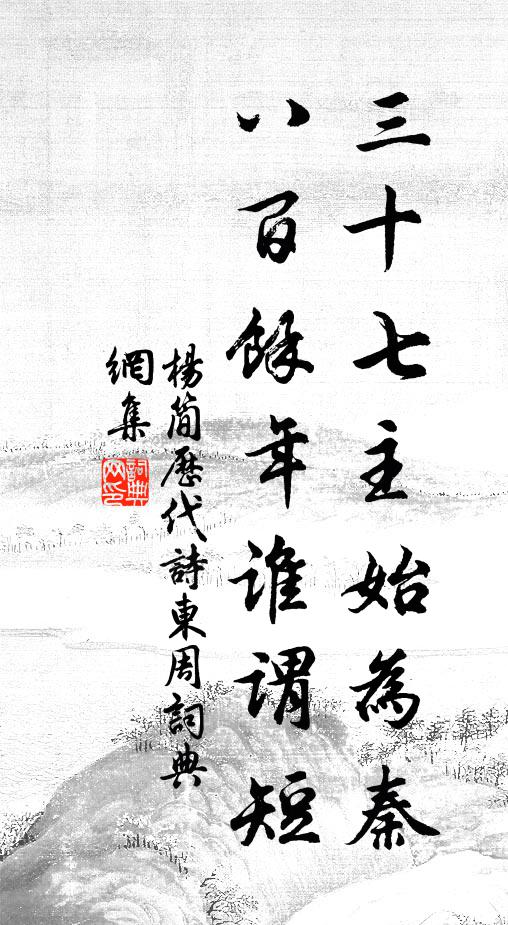 三十七主始為秦
八百餘年誰謂短
楊簡歷代詩東周詞典
網集
詞典
网印